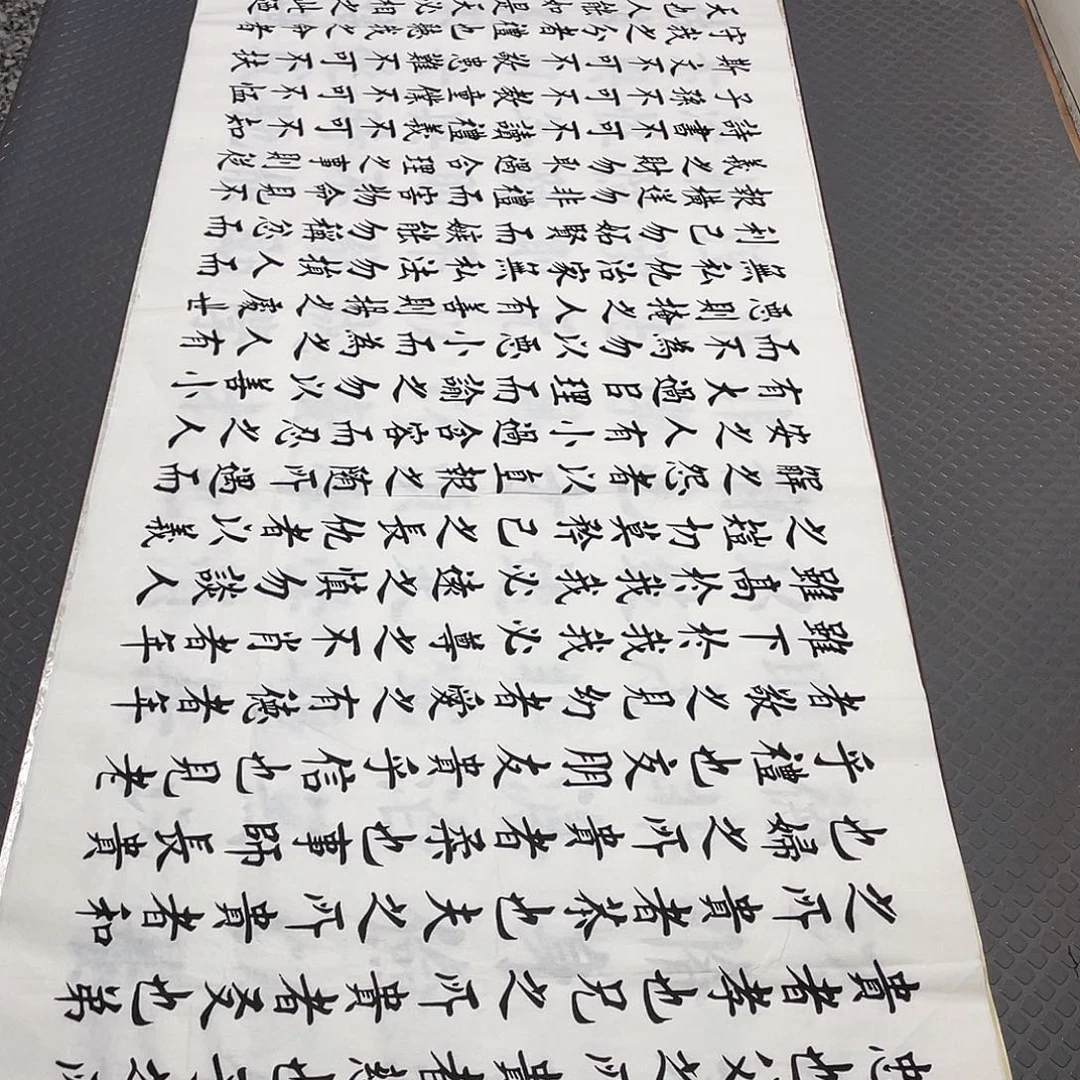 忠也父之所貴者慈也子之所
貴者孝也兄之所貴者友也弟
之所貴者恭也夫之所貴者和
也婦之所貴者柔也事師長貴
乎禮也交朋友貴乎信也見老
者敬之見幼者愛之有德者年
雖下於我我必尊之不肖者年
雖高於我我必遠之慎勿談人
之短切莫矜己之長仇者以義
解之怨者以直報之隨所遇而
安之人有小過含容而忍之人
有大過㠯理而諭之勿以善小
而不為勿以悪小而為之人有
悪則掩之人有善則揚之處世
無私仇治家無私法勿損人而
利己勿妬賢而嫉能勿稱忿而
報橫逆勿非禮而害物命見不
義之財勿取遇合理之事則從
詩書不可不讀禮義不可不知
子孫不可不教童僕不可不恤
斯文不可不敬患難不可不扶
守我之分者禮也聽我之命者
天也人能如是天必相之此